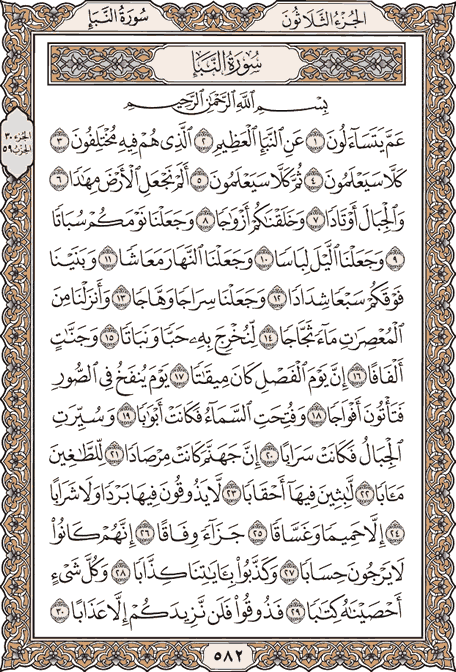 الجزء الثلاثون
سورة النبإ
سُورَةُ النَّبَإِ
الجزء ٣٠
الحزب ٥٩
بِسْمِ ٱللَّهِ ٱلرَّحْمَٰنِ ٱلرَّحِيمِ
عَمَّ يَتَسَآءَلُونَ ١ عَنِ ٱلنَّبَإِ ٱلْعَظِيمِ ٢ ٱلَّذِى هُمْ فِيهِ مُخْتَلِفُونَ ٣
كَلَّا سَيَعْلَمُونَ ٤ ثُمَّ كَلَّا سَيَعْلَمُونَ ٥ أَلَمْ نَجْعَلِ ٱلْأَرْضَ مِهَٰدًا ٦
وَٱلْجِبَالَ أَوْتَادًا ٧ وَخَلَقْنَٰكُمْ أَزْوَٰجًا ٨ وَجَعَلْنَا نَوْمَكُمْ سُبَاتًا
٩ وَجَعَلْنَا ٱلَّيْلَ لِبَاسًا ١٠ وَجَعَلْنَا ٱلنَّهَارَ مَعَاشًا ١١ وَبَنَيْنَا
فَوْقَكُمْ سَبْعًا شِدَادًا ١٢ وَجَعَلْنَا سِرَاجًا وَهَّاجًا ١٣ وَأَنزَلْنَا مِنَ
ٱلْمُعْصِرَٰتِ مَآءً ثَجَّاجًا ١٤ لِّنُخْرِجَ بِهِۦ حَبًّا وَنَبَاتًا ١٥ وَجَنَّٰتٍ
أَلْفَافًا ١٦ إِنَّ يَوْمَ ٱلْفَصْلِ كَانَ مِيقَٰتًا ١٧ يَوْمَ يُنفَخُ فِى ٱلصُّورِ
فَتَأْتُونَ أَفْوَاجًا ١٨ وَفُتِحَتِ ٱلسَّمَآءُ فَكَانَتْ أَبْوَٰبًا ١٩ وَسُيِّرَتِ
ٱلْجِبَالُ فَكَانَتْ سَرَابًا ٢٠ إِنَّ جَهَنَّمَ كَانَتْ مِرْصَادًا ٢١ لِّلطَّٰغِينَ
مَـَٔابًا ٢٢ لَّٰبِثِينَ فِيهَآ أَحْقَابًا ٢٣ لَّا يَذُوقُونَ فِيهَا بَرْدًا وَلَا شَرَابًا
٢٤ إِلَّا حَمِيمًا وَغَسَّاقًا ٢٥ جَزَآءً وِفَاقًا ٢٦ إِنَّهُمْ كَانُوا۟
لَا يَرْجُونَ حِسَابًا ٢٧ وَكَذَّبُوا۟ بِـَٔايَٰتِنَا كِذَّابًا ٢٨ وَكُلَّ شَىْءٍ
أَحْصَيْنَٰهُ كِتَٰبًا ٢٩ فَذُوقُوا۟ فَلَن نَّزِيدَكُمْ إِلَّا عَذَابًا ٣٠
٥٨٢